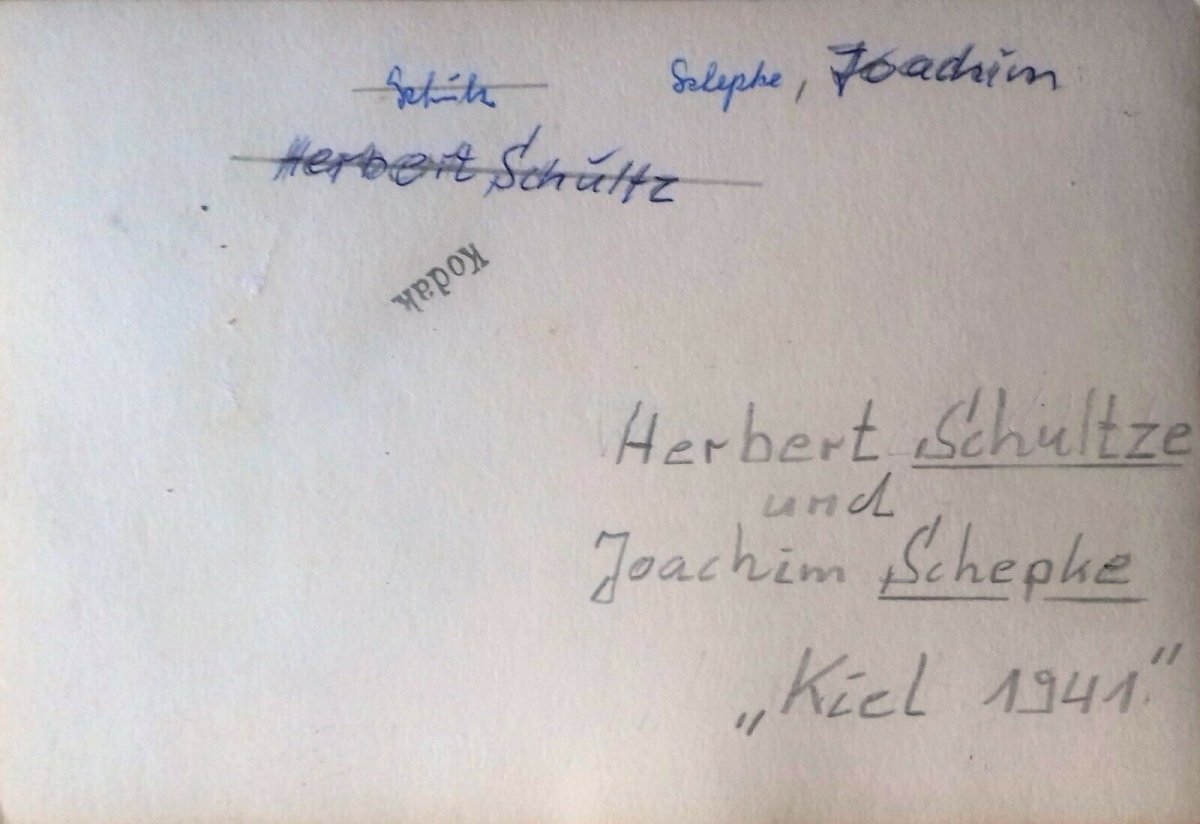 Schepke, Joachim
Herbert Schültz
Kodak
Herbert Schultze
und
Joachim Schepke
„Kiel 1941.“